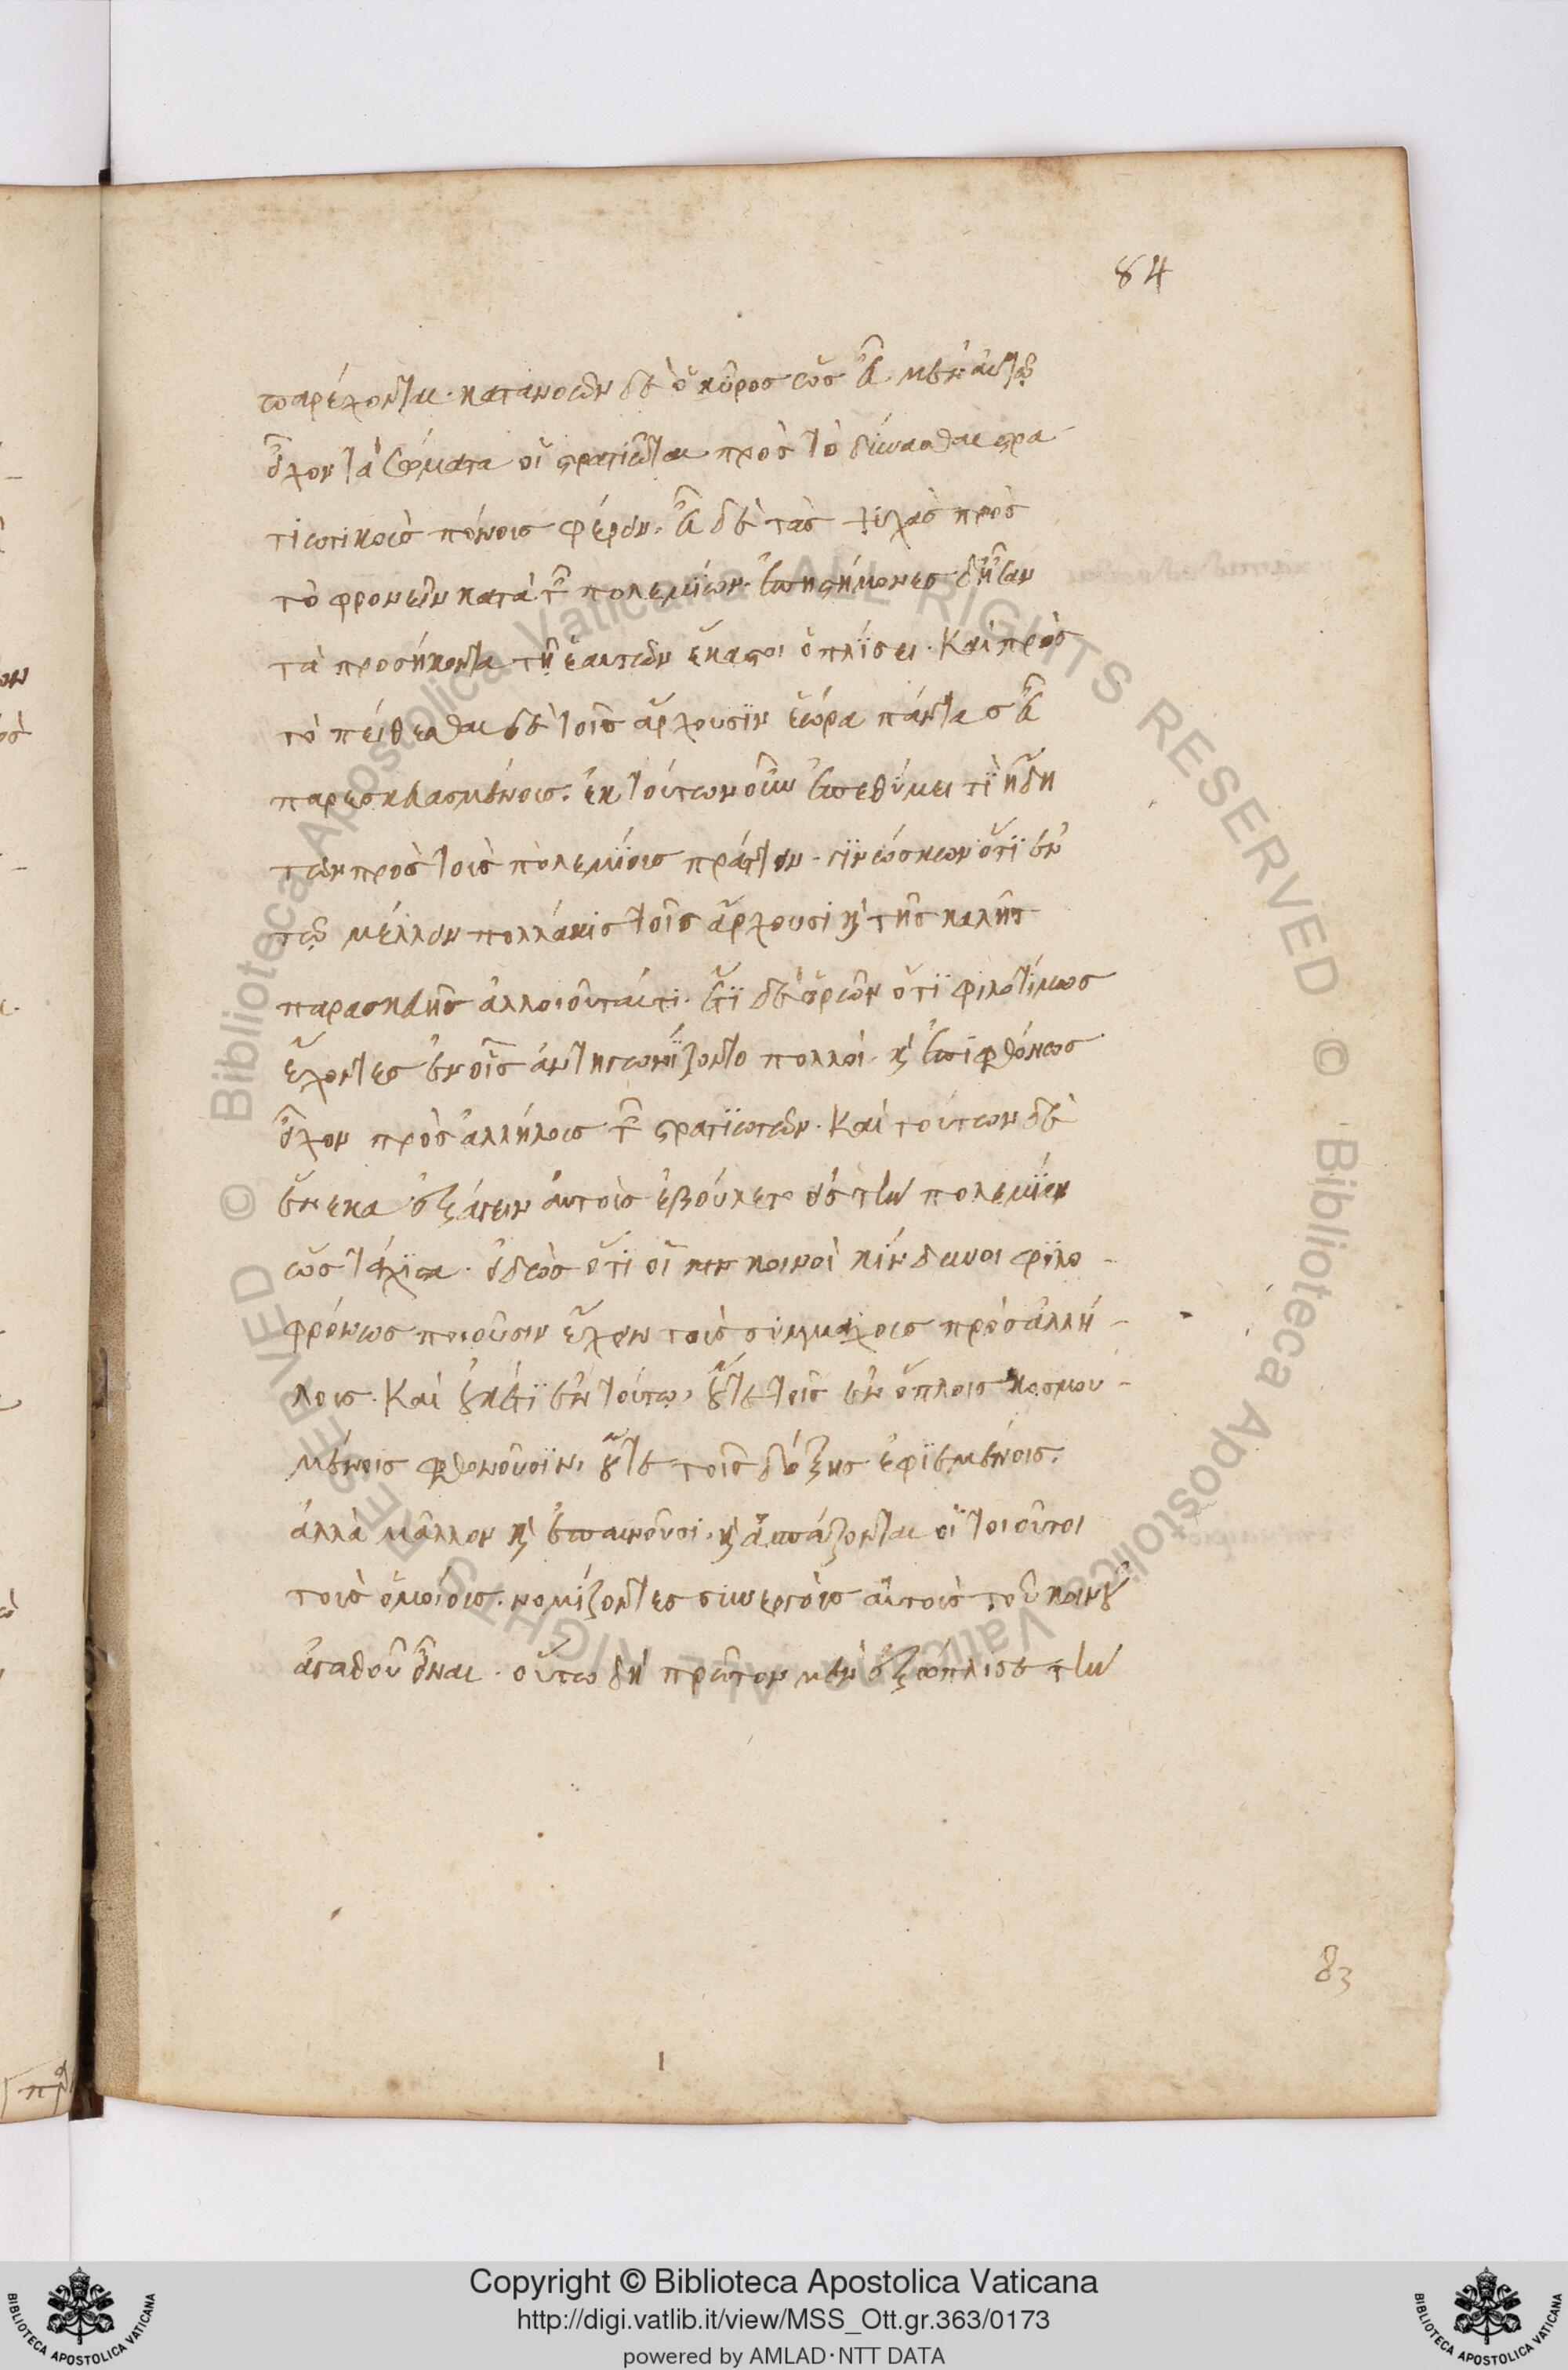 84
παρέχονται. κατανοῶν δὲ ὁ κῦρος ὡς εὖ μὲν αὐτῷ
εἶχον τὰ σώματα οἱ στρατιῶται πρὸς τὸ δύνασθαι στρα-
τιωτικοὺς πόνους φέρειν. εὖ δὲ τὰς ψυχὰς πρὸς
τὸ φρονεῖν κατὰ τῶν πολεμίων. ἐπιστήμονες δ' ἦσαν
τὰ προσήκοντα τῇ ἑαυτῶν ἕκαστοι ὁπλίσει. Καὶ πρὸς
τὸ πείθεσθαι δὲ τοῖς ἄρχουσιν ἑώρα πάντας εὖ
παρεσκευασμένους. ἐκ τούτων οὖν ἐπεθύμει τὶ ἤδη
τῶν πρὸς τοὺς πολεμίους πράττειν. γινώσκων ὅτι ἐν
τῷ μέλλειν πολλάκις τοῖς ἄρχουσι καὶ τῆς καλῆς
παρασκευῆς ἀλλοιοῦταί τι. ἔτι δὲ ὁρῶν ὅτι φιλοτίμως
ἔχοντες ἐν οἷς ἀντηγωνίζοντο πολλοὶ. καὶ ἐπιφθόνως
εἶχον πρὸς ἀλλήλους τῶν στρατιωτῶν. Καὶ τούτων δὲ
ἕνεκα ἐξάγειν αὐτοὺς ἐβούλετο εἰς τὴν πολεμίαν
ὡς τάχιστα. εἰδὼς ὅτι οἱ κοινοὶ κίνδυνοι φιλο-
φρόνως ποιοῦσιν ἔχειν τοὺς συμμάχους πρὸς ἀλλή-
λους. Καὶ οὐκέτι ἐν τούτῳ, οὔτε τοῖς ἐν ὅπλοις κοσμου-
μένοις φθονοῦσιν, οὔτε τοῖς δόξης ἐφιεμένοις.
ἀλλὰ μᾶλλον καὶ ἐπαινοῦσι. καὶ ἀσπάζονται οἱ τοιοῦτοι
τοὺς ὁμοίους. νομίζοντες συνεργοὺς αὐτοὺς τοῦ κοινοῦ
ἀγαθοῦ εἶναι. οὕτω δὴ πρῶτον μὲν ἐξώπλισε τὴν
83
Copyright © Biblioteca Apostolica Vaticana
http://digi.vatlib.it/view/MSS_Ott.gr.363/0173
powered by AMLAD·NTT DATA